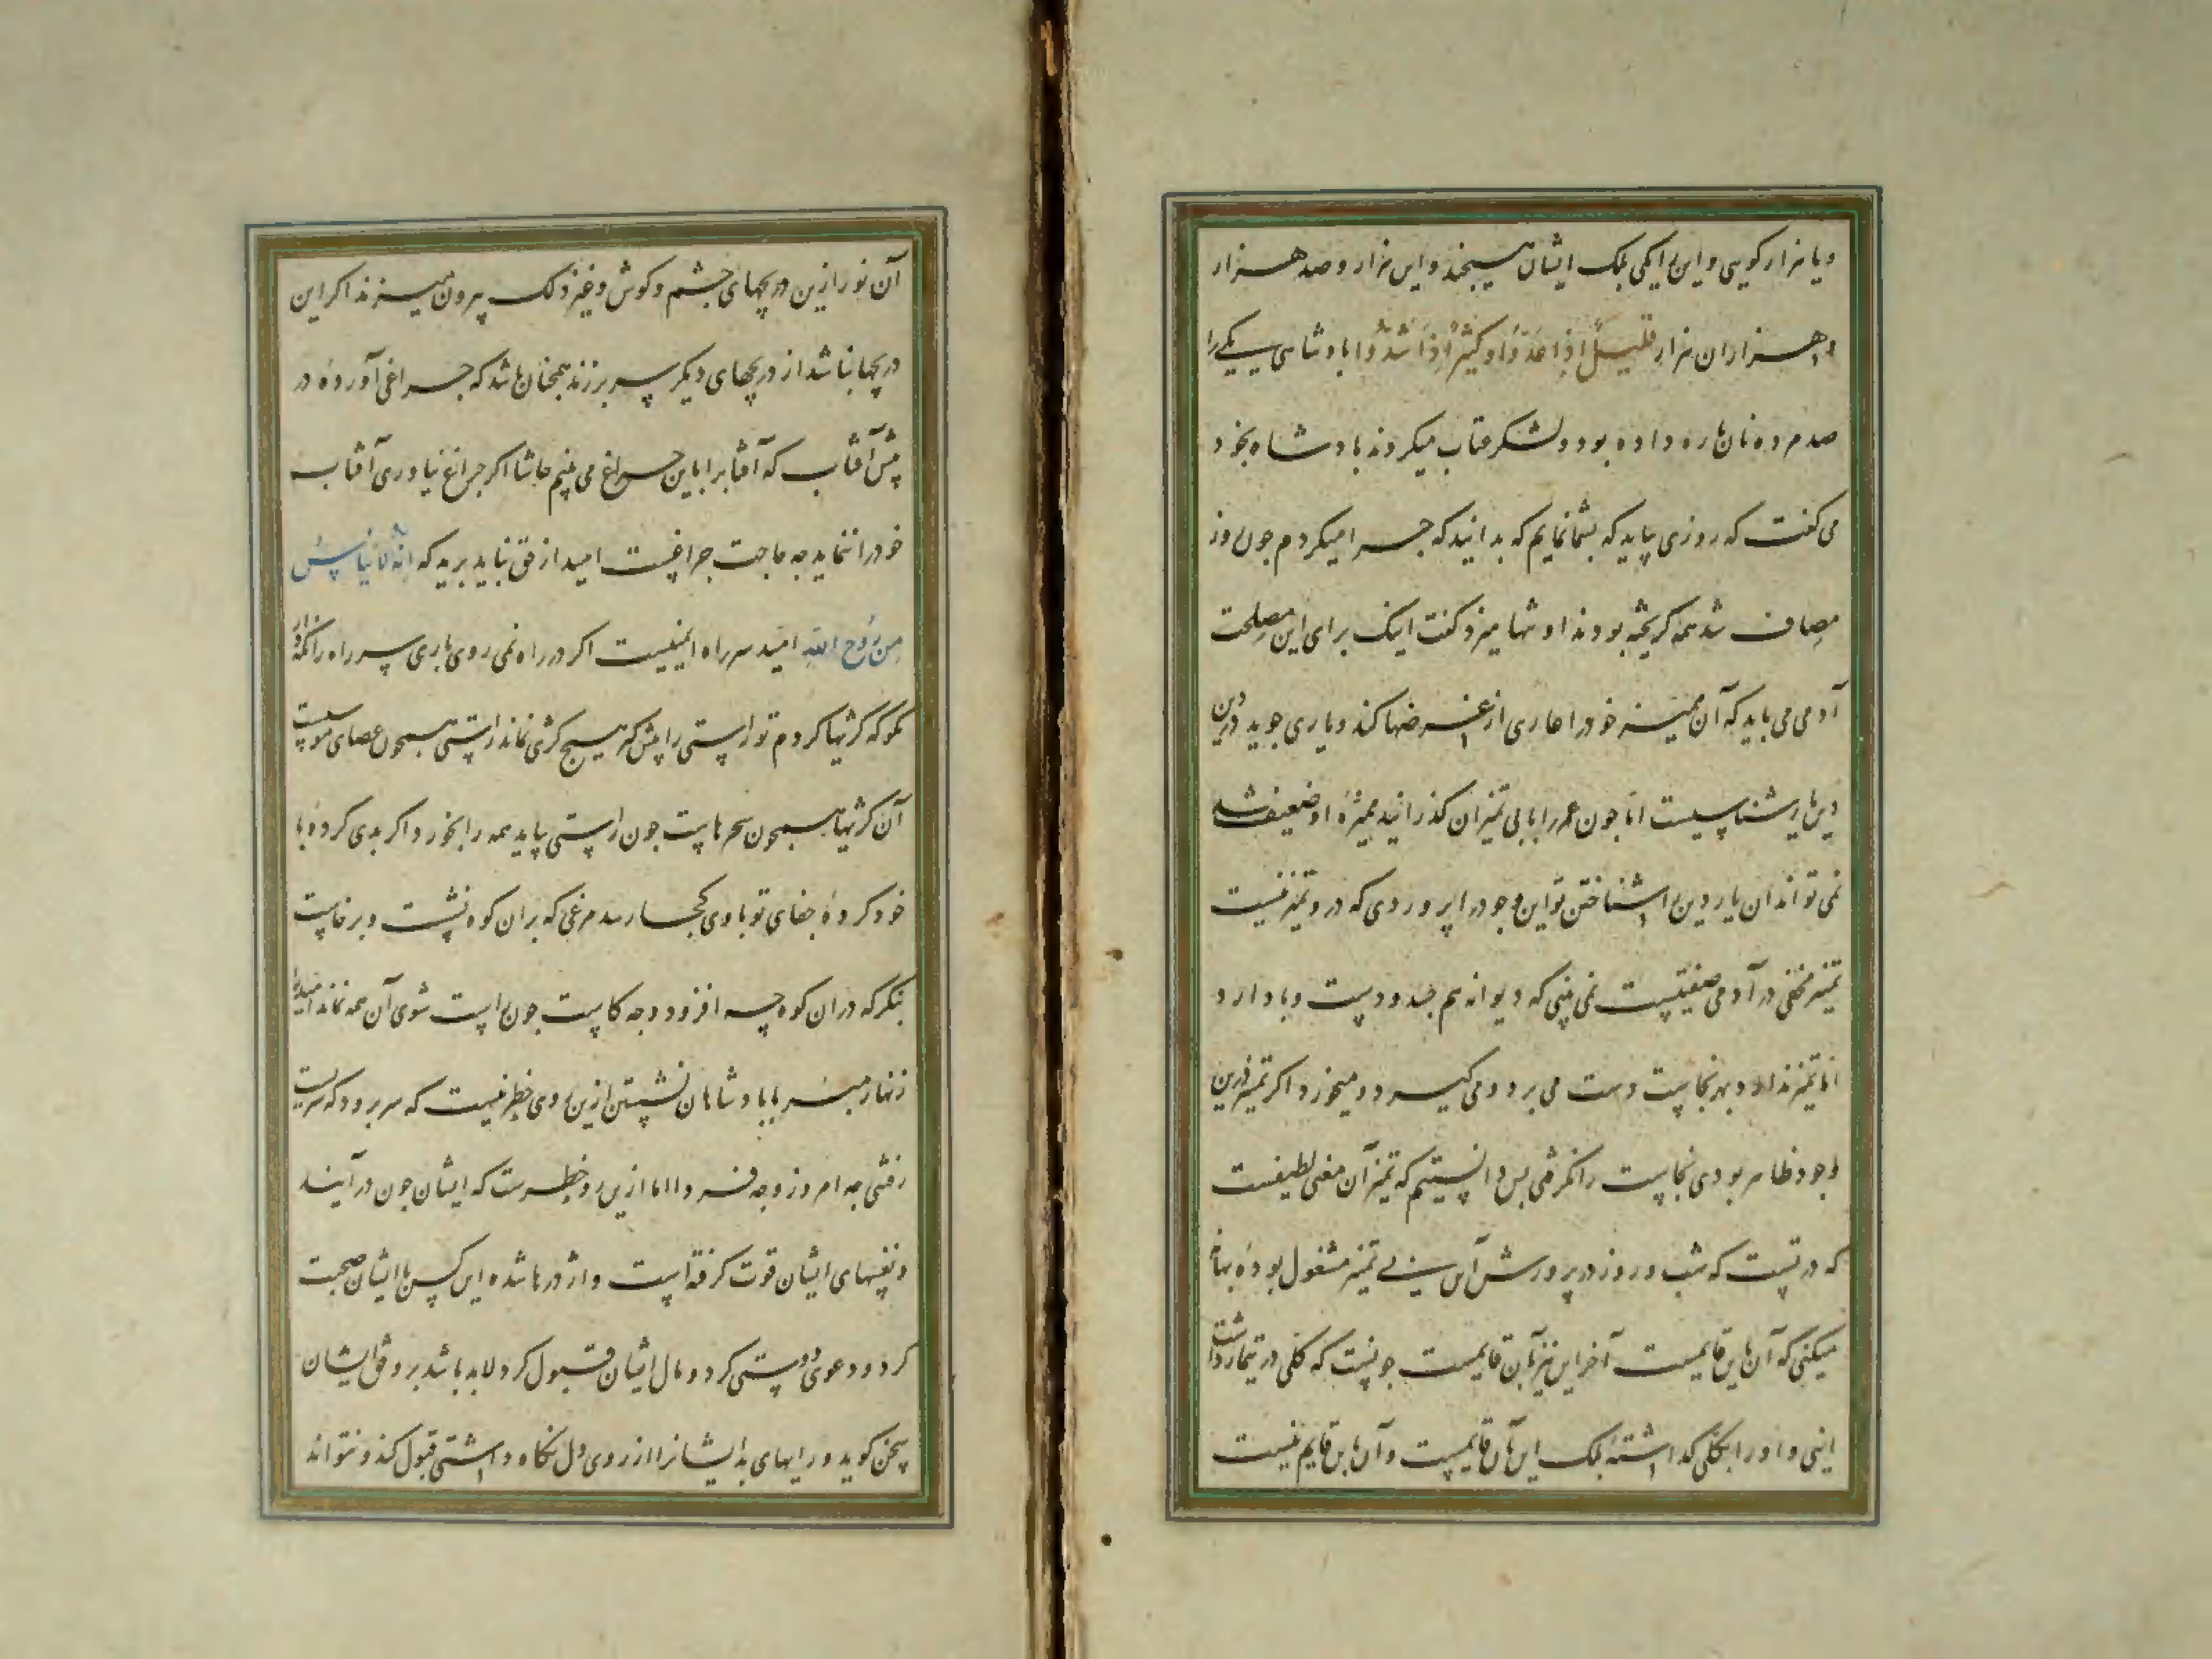 و یا هزار کویی و این را یکی بلک ایشان هیچند و این هزار و صد هزار
و هزاران هزار قلیل اذا عدوا و کثیر اذا شدوا پادشاهی یکی را
صد مرده نان باره داده بود و لشکر عتاب میکردند پادشاه بخود
می کفت که روزی بیاید که بشما نمایم که بدانید که چرا میکردم چون روز
مصاف شد همه کریخته بودند او تنها میزد کفت اینک برای این مصلحت
آدمی می باید که آن ممیزه خود را عاری از غرضها کند و یاری جوید در دین
دین یار شناسیست اما چون عمر را با بی تمیزان کذرانید ممیزه او ضعیف شد
نمی تواند آن یار دین را شناختن تو این وجود را پروردی که درو تمیز نیست
تمیز مخفی در آدمی صفتیست نمی بینی که دیوانه هم جسد و دست و پا دارد
اما تمیز ندارد بهر نجاست دست می برد و می کیرد و میخورد اکر تمیز درین
وجود ظاهر بودی نجاست را نکرفتی پس دانستیم که تمیز آن معنی لطیفست
که در تست که شب و روز در پرورش آن بی تمیز مشغول بوده بهانه
میکنی که آن باین قایمست آخر این نیز بآن قایمست چونست که کلی در تیمار داشت
اینی و او را بکلی کذاشته بلک این بآن قایمست و آن باین قایم نیست
آن نور ازین دریچهای چشم و کوش و غیر ذلک برون میزند اکر این
دریچها نباشد از دریچهای دیکر سر برزند همچنان باشد که چراغی آورده در
پیش آفتاب که آفتاب را باین چراغ می بینم حاشا اکر چراغ نیاوری آفتاب
خود را نماید چه حاجت چراغست امید از حق نباید برید که انه لا ییاس
من روح الله امید سر راه ایمنیست اکر در راه نمی روی باری سر راه را نکه دار
مکو که کژیها کردم تو راستی را پیش کیر هیچ کژی نماند راستی همچون عصای موسیست
آن کژیها همچون سحرهاست چون راستی بیاید همه را بخورد اکر بدی کرده با
خود کرده جفای تو باوی کجا رسد مرغی که بران کوه نشست و برخاست
بنکر که دران کوه چه افزود و چه کاست چون راست شوی آن همه نماند امید را
زنهار مبر با پادشاهان نشستن ازین روی خطر نیست که سر برود که سریست
رفتنی چه امروز و چه فردا اما ازین رو خطرست که ایشان چون درآیند
و نفسهای ایشان قوت کرفته است و اژدرها شده این کس با ایشان صحبت
کرد و دعوی دوستی کرد و مال ایشان قبول کرد لابد باشد بر وفق ایشان
سخن کوید و رایهای بد ایشانرا از روی دل نکاه داشتی قبول کند و نتواند